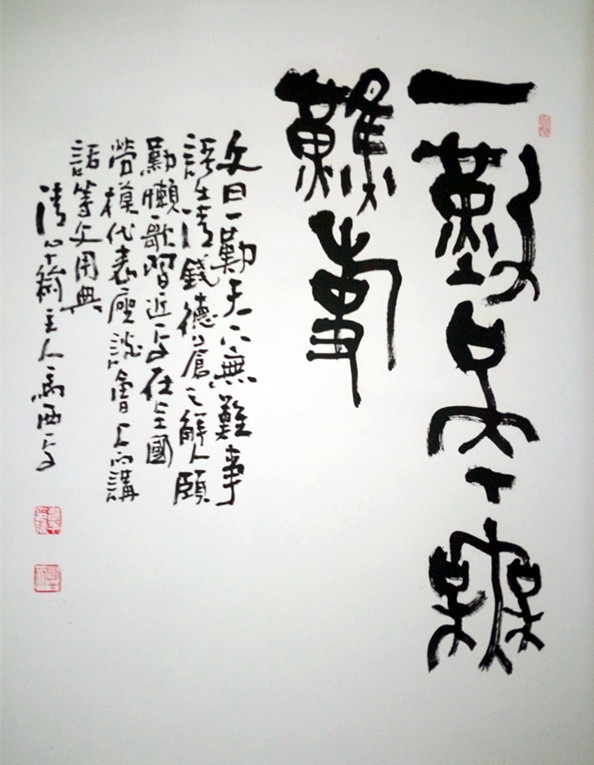 一勤天下無
難事
文曰一勤天下無難事
語出清錢德蒼之解人頤
勤懶歌習近平在全國
勞模代表座談會上的講
話等文用典
清心主人馬西平